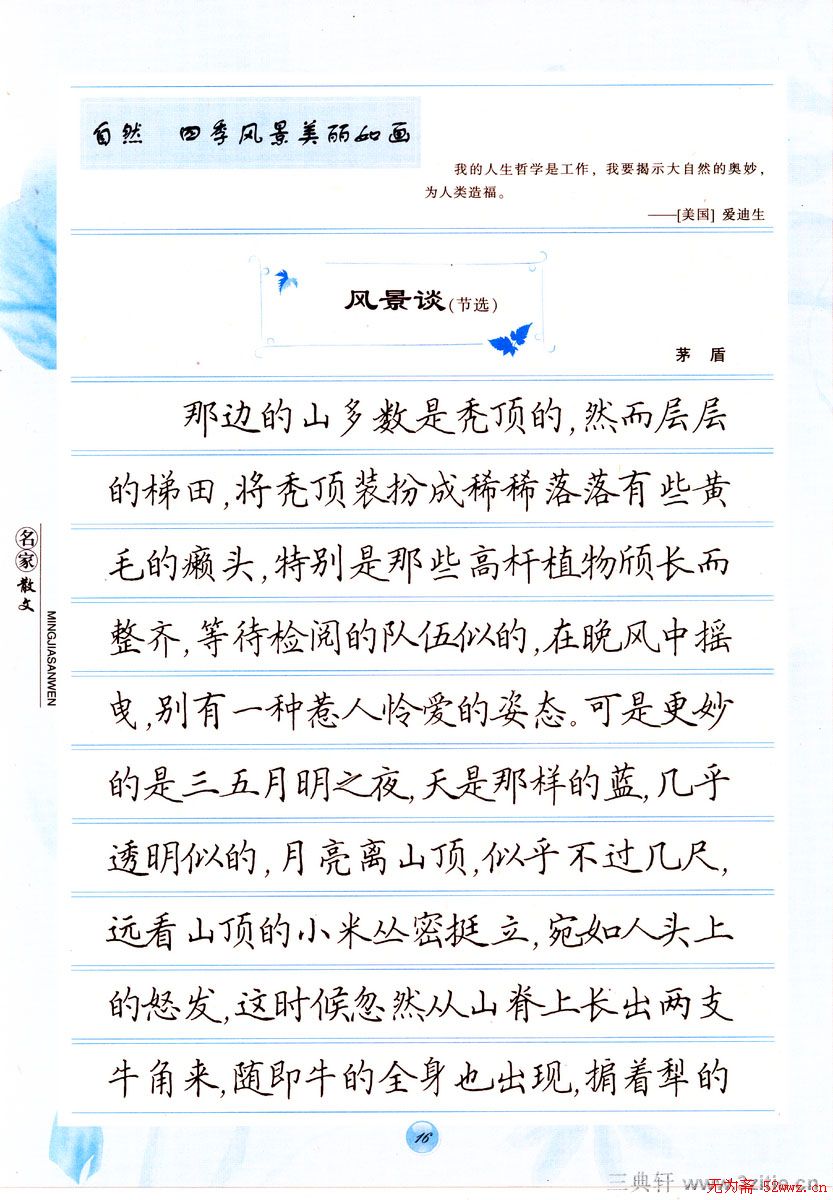 自然 四季风景美丽如画
我的人生哲学是工作，我要揭示大自然的奥妙，
为人类造福。
——[美国] 爱迪生
风景谈(节选)
茅 盾
那边的山多数是秃顶的,然而层层
的梯田,将秃顶装扮成稀稀落落有些黄
毛的癞头,特别是那些高杆植物颀长而
整齐,等待检阅的队伍似的,在晚风中摇
曳,别有一种惹人怜爱的姿态。可是更妙
的是三五月明之夜,天是那样的蓝,几乎
透明似的,月亮离山顶,似乎不过几尺,
远看山顶的小米丛密挺立,宛如人头上
的怒发,这时候忽然从山脊上长出两支
牛角来,随即牛的全身也出现,掮着犁的
名家散文
MINGJIASANWEN
16
三典轩 www.3zitie.cn
无为斋 52wwz.cn